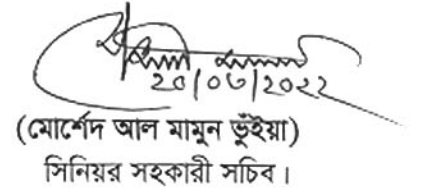 ২০/০৩/২০২২
(মোর্শেদ আল মামুন ভূঁইয়া)
সিনিয়র সহকারী সচিব।